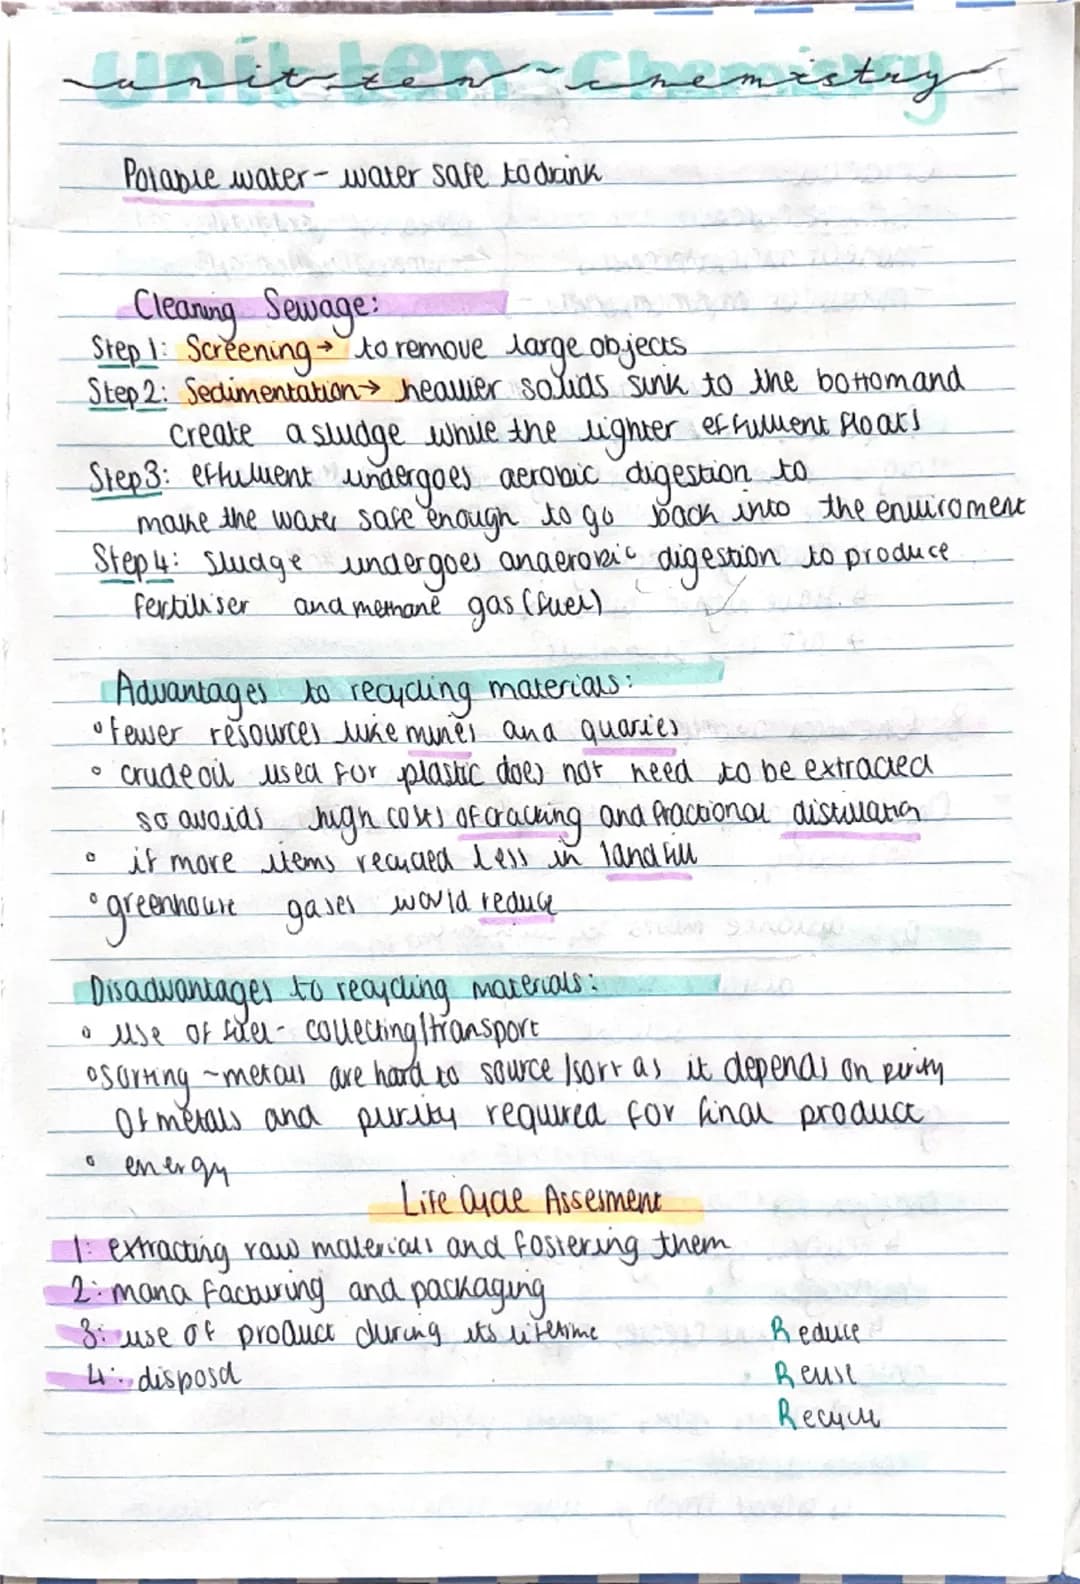 unit ten - Chemistry
unit ten - chemistry
Potable water - water safe to drink
Cleaning Sewage:
Step 1: Screening → to remove large objects
Step 2: Sedimentation → heavier solids sink to the bottom and
create a sludge while the lighter effulment floats
Step 3: effulment undergoes aerobic digestion to
make the water safe enough to go back into the enviroment
Step 4: Sludge undergoes anaerobic digestion to produce
fertiliser and methane gas (fuel)
Advantages to recycling materials:
• fewer resources like mines and quaries
• crude oil used for plastic does not need to be extracted
so avoids high costs of cracking and fractional distillation
• if more items recycled less in landfill
• greenhouse gases would reduce
Disadvantages to recycling materials:
• use of fuel - collecting/transport
• sorting ~ metals are hard to source/sort as it depends on purity
of metals and purity required for final product
• energy
Life Cycle Assesment
1: extracting raw materials and fostering them
2: manafacturing and packaging
3: use of product during its lifetime
Reduce
4: disposal
Reuse
Recycle